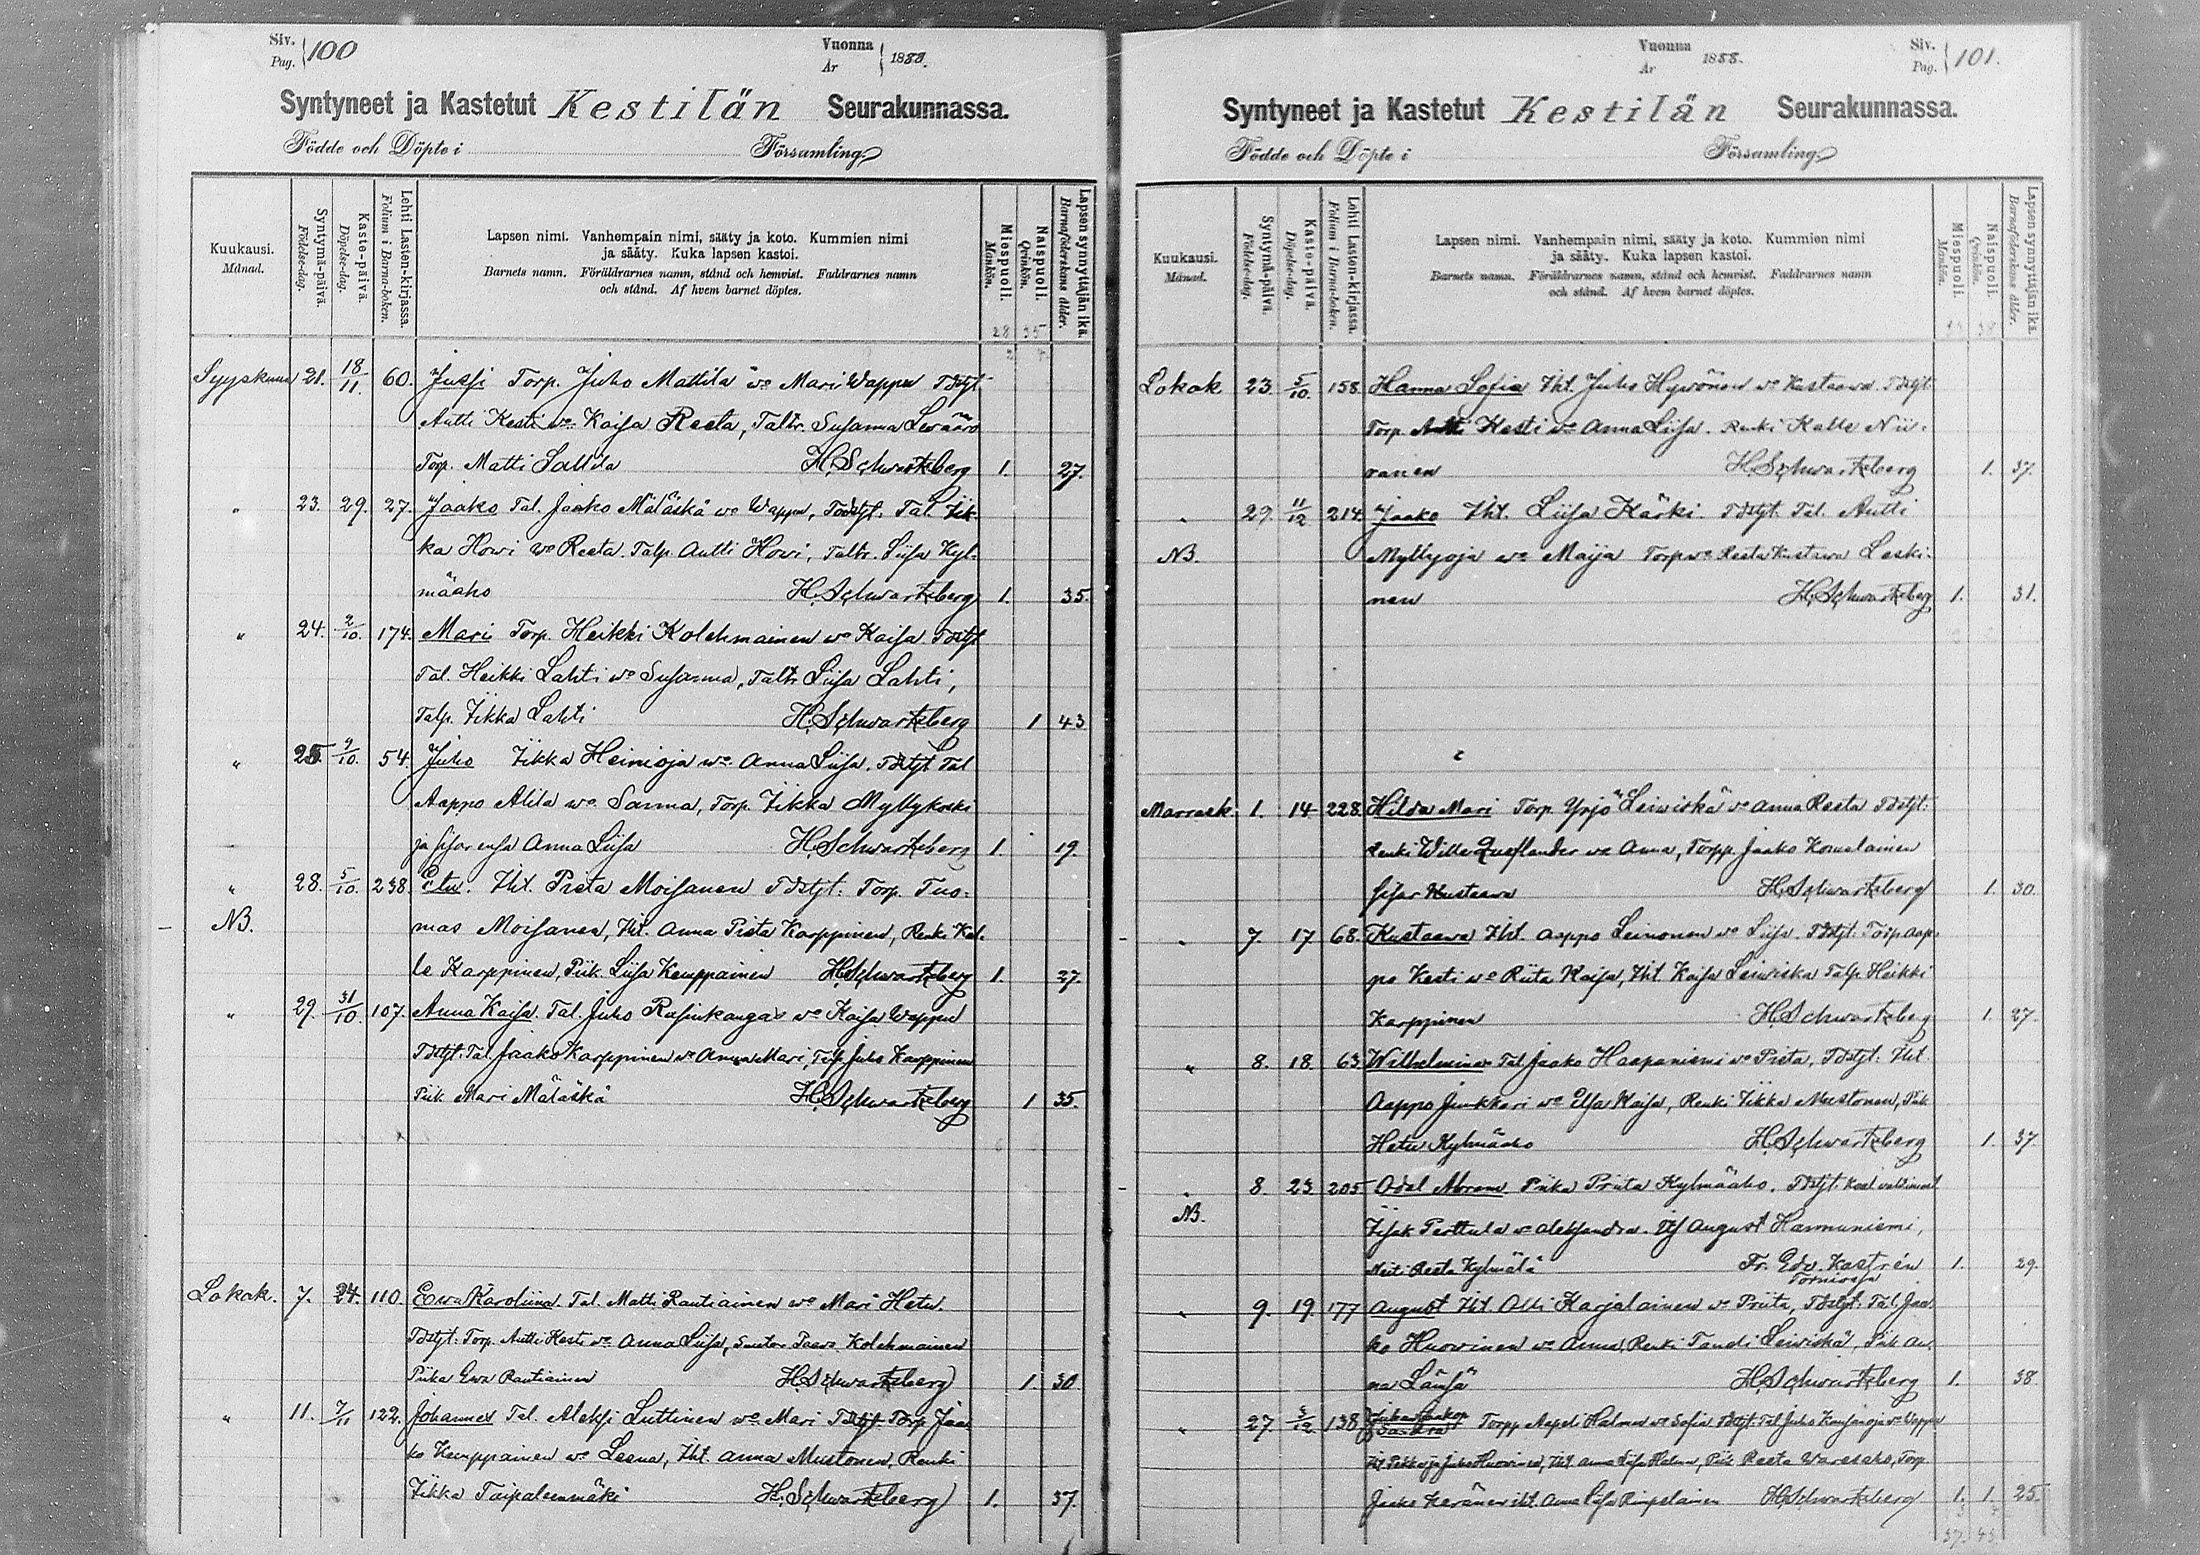 Siv. Pag. 100
Vuonna År 1888.
Syntyneet ja Kastetut Kestilän Seurakunnassa.
Födde och Döpte i Församling.
Kuukausi. Månad.
Syntymä-päivä. Födelse-dag.
Kaste-päivä. Döpelse-dag.
Lehti Lasten-kirjassa. Folium i Barna-boken.
Lapsen nimi. Vanhempain nimi, sääty ja koto. Kummien nimi
ja sääty. Kuka lapsen kastoi.
Barnets namn. Föräldrarnes namn, stånd och hemvist. Faddrarnes namn
och stånd. Af hvem barnet döptes.
Miespuoli. Mankön.
Naispuoli. Qvinkön.
Lapsen synnyttäjän ikä. Barnaföderskans ålder.
28 35
Syyskuun 21. 18/11. 60. Jussi Torp. Juho Mattila wo Mari Wappu Tdstjt.
Antti Kesti wo Kaisa Reeta, Taltr. Susanna
Torp. Matti H. Schwartzberg 1. 27.
" 23. 29. 27. Jaako Tal. Jaako Mäläskä wo Wappu, Tdstjt. Tal. Iik-
ka Howi wo Reeta. Talp. Antti Howi, Taltr. Liisa Kyl-
mäaho H. Schwartzberg 1. 35.
" 24. 2/10. 174. Mari Torp. Heikki Kolehmainen wo Kaisa. Tdstjt
Tal. Heikki Lahti wo Susanna, Taltr. Liisa Lahti,
Talp. Iikka Lahti H. Schwartzberg 1 43
" 25. 9/10. 54. Juho Iikka Heinioja wo Anna Liisa. Tdstjt Tal
Aappo Alila wo Sanna, Torp. Iikka Myllykoski
ja sisarensa Anna Liisa H. Schwartzberg 1. 19.
" 28. 5/10. 238. Etu. Iht. Priita Moisanen Tdstjt: Torp. Tuo-
NB. mas Moisanen, Iht. Anna Priita Karppinen, Renki Kal-
le Karppinen, Piik. Liisa Kemppainen H. Schwartzberg 1. 37.
" 29. 31/10. 107. Anna Kaisa. Tal. Juho Rusinkangas wo Kaisa Wappu
Tdstjt. Tal Jaako Karppinen wo Anna Mari, Talp. Juho Karppinen
Piik. Mari Mäläskä H. Schwartzberg 1 35.
Lokak. 7. 24. 110. Ewa Karoliina. Tal. Matti Rautiainen wo Mari Hetu.
Tdstjt: Torp. Antti Kesti wo Anna Liisa, Suutar. Paavo Kolehmainen
Piika Ewa Rautiainen H. Schwartzberg 1. 30.
" 11. 7/11 122. Johannes Tal. Aleksi Luttinen wo Mari Tdstjt Torp Jaa-
ko Kemppainen wo Leena, Iht. Anna Mustonen, Renki
Iikka Taipaleenmäki H. Schwartzberg 1. 37.
Vuonna År 1888.
Siv. Pag. 101.
Syntyneet ja Kastetut Kestilän Seurakunnassa.
Födde och Döpte i Församling.
Kuukausi. Månad.
Syntymä-päivä. Födelse-dag.
Kaste-päivä. Döpelse-dag.
Lehti Lasten-kirjassa. Folium i Barna-boken.
Lapsen nimi. Vanhempain nimi, sääty ja koto. Kummien nimi
ja sääty. Kuka lapsen kastoi.
Barnets namn. Föräldrarnes namn, stånd och hemvist. Faddrarnes namn
och stånd. Af hvem barnet döptes.
Miespuoli. Mankön.
Naispuoli. Qvinkön.
Lapsen synnyttäjän ikä. Barnaföderskans ålder.
Lokak 23. 5/10. 158. Hanna Sofia Iht. Juho Hywönen wo Kustaawa Tdstjt.
Torp. Antti Kesti wo Anna Liisa. Renki Kalle Nii-
ranen H. Schwartzberg 1. 37.
" 29. 11/12 214. Jaako Iht. Liisa Kärki. Tdstjt. Tal. Antti
NB. Myllyoja wo Maija Torp wo Reeta Kustawa Leski-
nen H. Schwartzberg 1. 31.
Marrask. 1. 14 228. Hilda Mari Torp. Yrjö Leiwiskä wo Anna Reeta Tdstjt.
Renki Wille wo Anna, Torpp. Jaako
sisar Kustaawa H. Schwartzberg 1. 30.
" 7. 17. 68. Kustaawa Iht. Aappo Leinonen wo Liisa. Tdstjt: Torp. Aap-
po Kesti wo Riita Kaisa, Iht. Kaisa Leiwiska Talp. Heikki
Karppinen H. Schwartzberg 1. 27.
" 8. 18. 63. Wilhelmina Tal Jaako Haapaniemi wo Priita, Tdstjt: Iht.
Aappo Junkkari wo Elsa Kaisa, Renki Iikka Mustonen, Piik.
Hetu Kylmäaho H. Schwartzberg 1. 37.
" 8. 23 205 Abram Piika Priita Kylmäaho. Tdstjt.
NB. Iisak Perttula wo Aleksandra. August Hannuniemi,
Neiti Reeta Kylmälä Fr. Edv. Kastrén 1. 29.
" 9. 19. 177 August Iht. Olli Karjalainen wo Priita, Tdstjt: Tal. Jaa-
ko Huowinen wo Anna, Renki Taneli Leiwiskä, Piik An-
na Länsä H. Schwartzberg 1. 38
" 27. 5/12. 138 Torpp Aapeli Halonen wo Sofia Tdstjt. Tal Juho wo Wappu
Iht Pekka ja Juho Huowinen, Iht. Anna Liisa Halonen, Piik Reeta Waresaho, Torp
Jaako Keränen Iht. Anna Liisa H. Schwartzberg 1. 1. 25.